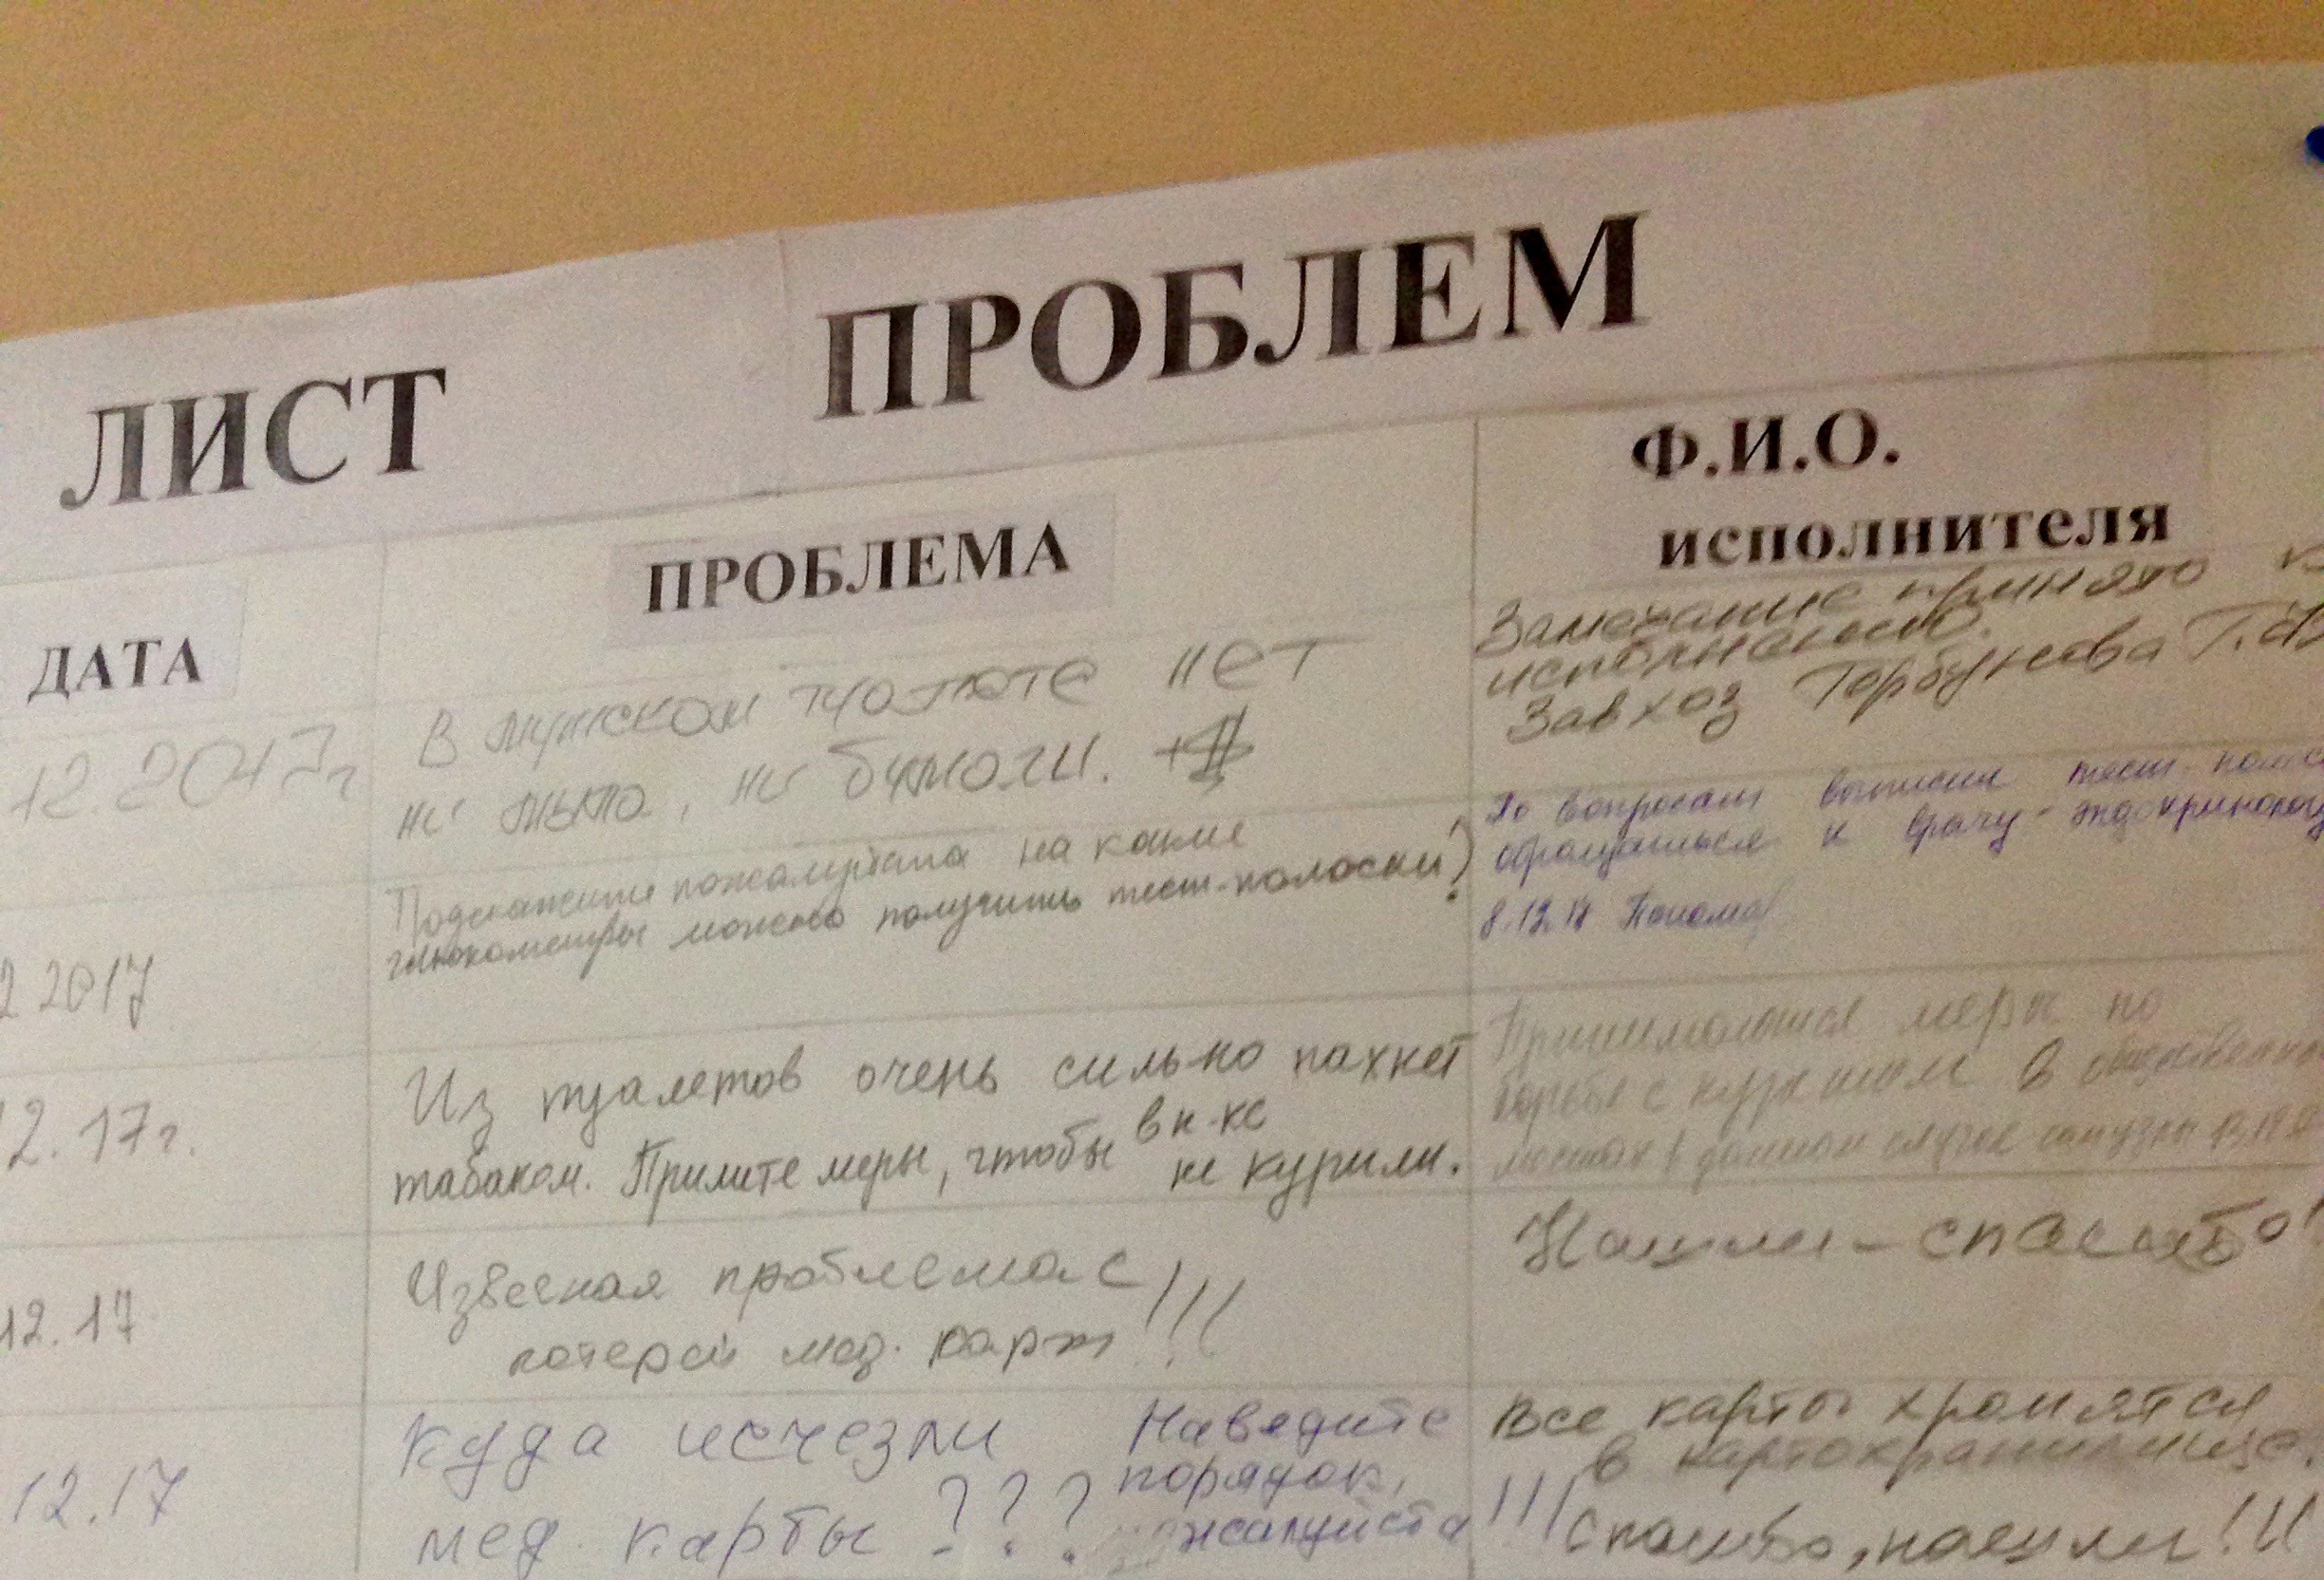 ЛИСТ ПРОБЛЕМ
ДАТА
ПРОБЛЕМА
Ф.И.О.
исполнителя
12.2017г
В мужском туалете нет
ни мыла, ни бумаги. +
Замечание принято к
исполнению.
Завхоз Горбунова Т.
2 2017
Подскажите пожалуйста на какие
глюкометры можно получить тест-полоски?
По вопросам выписки тест-полос
обращаться к врачу-эндокринологу
8.12.17
2.17г.
Из туалетов очень сильно пахнет
табаком. Примите меры, чтобы в п-ке
не курили.
Принимаются меры по
борьбе с курением в обществен
местах в данном случае
12.17
Извесная проблема с
потерей мед. карт!!!
Нашли - спасибо!
12.17
Куда исчезли
мед. карты ???
Наведите
порядок,
пожалуйста !!!
Все карты хранятся
в картохранилище.
Спасибо, нашли!!!